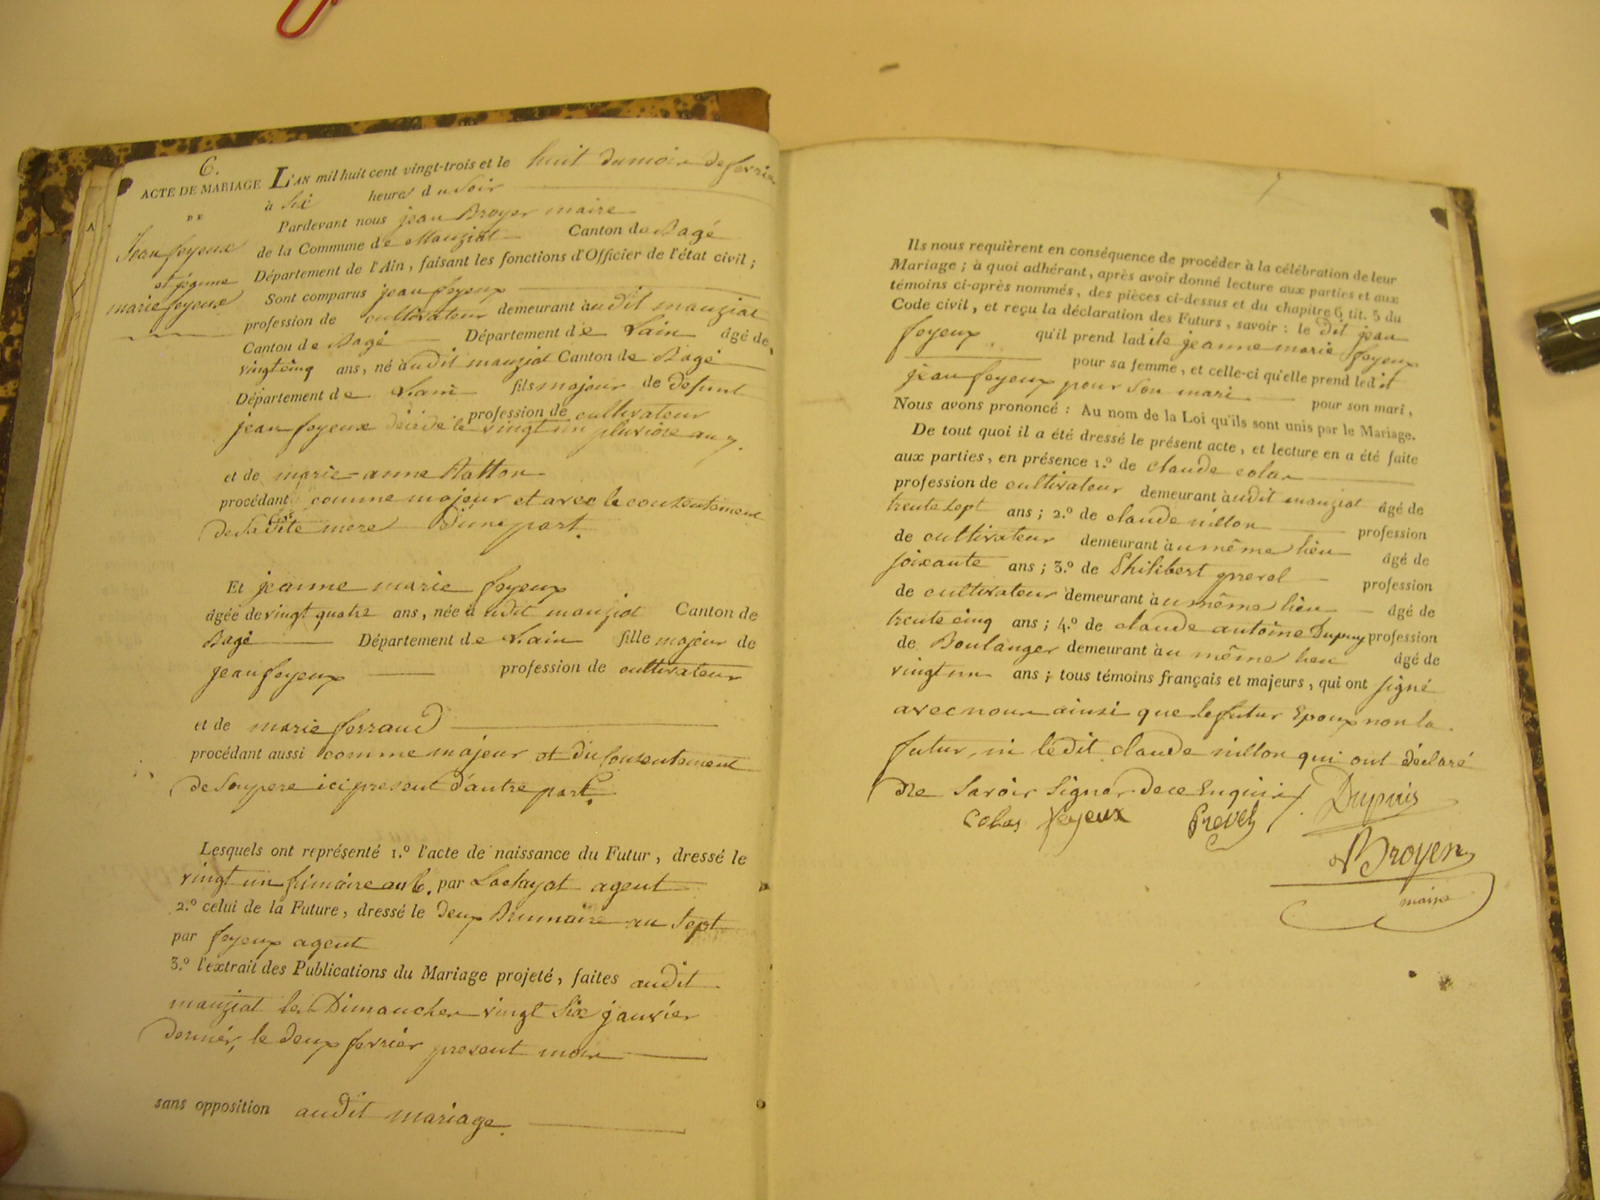 6.
ACTE DE MARIAGE
DE
Jean foyeux
et jeanne
marie foyeux
L'AN mil huit cent vingt-trois et le huit du mois de fevrier
à Six heures du soir
Pardevant nous jean Broyer maire
de la Commune de Manziat Canton de Bagé
Département de l'Ain, faisant les fonctions d'Officier de l'état civil ;
Sont comparus jean foyeux
profession de cultivateur demeurant audit manziat
Canton de Bagé Département de Lain âgé de
vingt cinq ans, né audit manziat Canton de Bagé
Département de Lain fils majeur de defunt
jean foyeux décédé le profession de cultivateur
vingt un pluviose an 7.
et de marie-anne
procédant comme majeur et avec le consentement
de sadite mere d'une part.
Et jeanne marie foyeux
âgée de vingt quatre ans, née audit manziat Canton de
Bagé Département de Lain fille majeur de
jean foyeux profession de cultivateur
et de marie ferraud
procédant aussi comme majeur et du consentement
de Son pere ici present d'autre part.
Lesquels ont représenté 1.º l'acte de naissance du Futur, dressé le
vingt un frimaire an 6. par agent
2.º celui de la Future, dressé le deux Brumaire an Sept
par foyeux agent
3.º l'extrait des Publications du Mariage projeté, faites audit
manziat les Dimanches vingt Six janvier
dernier, le deux fevrier present mois
sans opposition audit mariage.
Ils nous requièrent en conséquence de procéder à la célébration de leur
Mariage ; à quoi adhérant, après avoir donné lecture aux parties et aux
témoins ci-après nommés, des pièces ci-dessus et du chapitre 6 tit. 5 du
Code civil, et reçu la déclaration des Futurs, savoir : le dit jean
foyeux qu'il prend ladite jeanne marie foyeux
pour sa femme, et celle-ci qu'elle prend ledit
jean foyeux pour Son mari pour son mari,
Nous avons prononcé : Au nom de la Loi qu'ils sont unis par le Mariage.
De tout quoi il a été dressé le présent acte, et lecture en a été faite
aux parties, en présence 1.º de claude colas
profession de cultivateur demeurant audit manziat âgé de
trente sept ans ; 2.º de claude nillon profession
de cultivateur demeurant au même lieu âgé de
soixante ans ; 3.º de Philibert prevel profession
de cultivateur demeurant au même lieu âgé de
trente cinq ans ; 4.º de claude antoine Dupuy profession
de Boulanger demeurant au même lieu âgé de
vingt un ans ; tous témoins français et majeurs, qui ont signé
avec nous ainsi que le futur Epoux non la
futur, ni ledit claude nillon qui ont déclaré
ne Savoir Signer de ce Enquis
Colas foyeux Prevel Dupuis
Broyer
maire